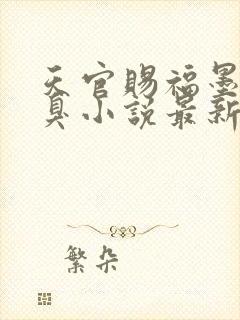 天官赐福墨
臭小说最新
繁朵